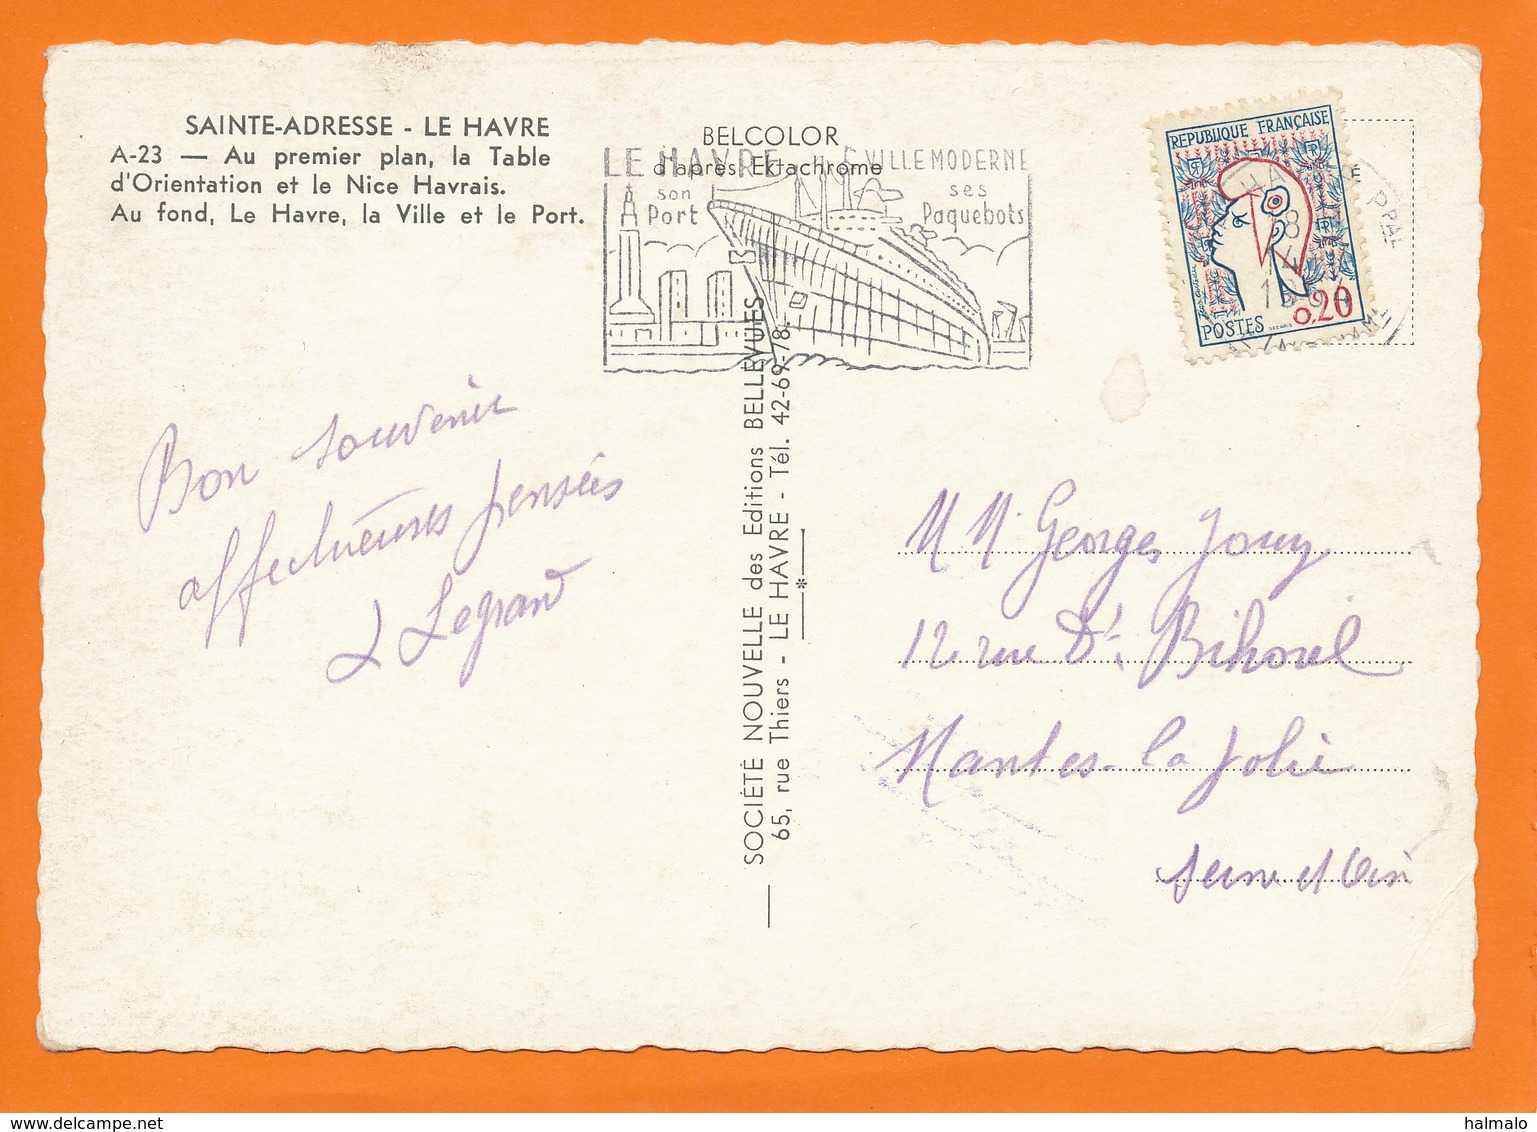 SAINTE-ADRESSE - LE HAVRE
A-23 — Au premier plan, la Table
d'Orientation et le Nice Havrais.
Au fond, Le Havre, la Ville et le Port.
BELCOLOR
d'après Ektachrome
LE HAVRE VILLE MODERNE
son
Port
ses
Paquebots
REPUBLIQUE FRANÇAISE
0,20
POSTES
DECARIS
18
14
PPAL
E
Bon souvenir
affectueuses pensées
Legrand
SOCIÉTÉ NOUVELLE des Editions BELLEVUES
65, rue Thiers - LE HAVRE - Tél. 42-69-78.
M M. Georges Jouy
12 rue Dr Bihorel
Mantes la Jolie
Seine et Oise
delcampe.net
halmalo